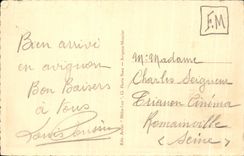 F.M
Bien arrivé
en avignon
Bon Baisers
à tous
Louis
M: Madame
Charles Seigneur
Trianon Cinéma
Romainville
(Seine)